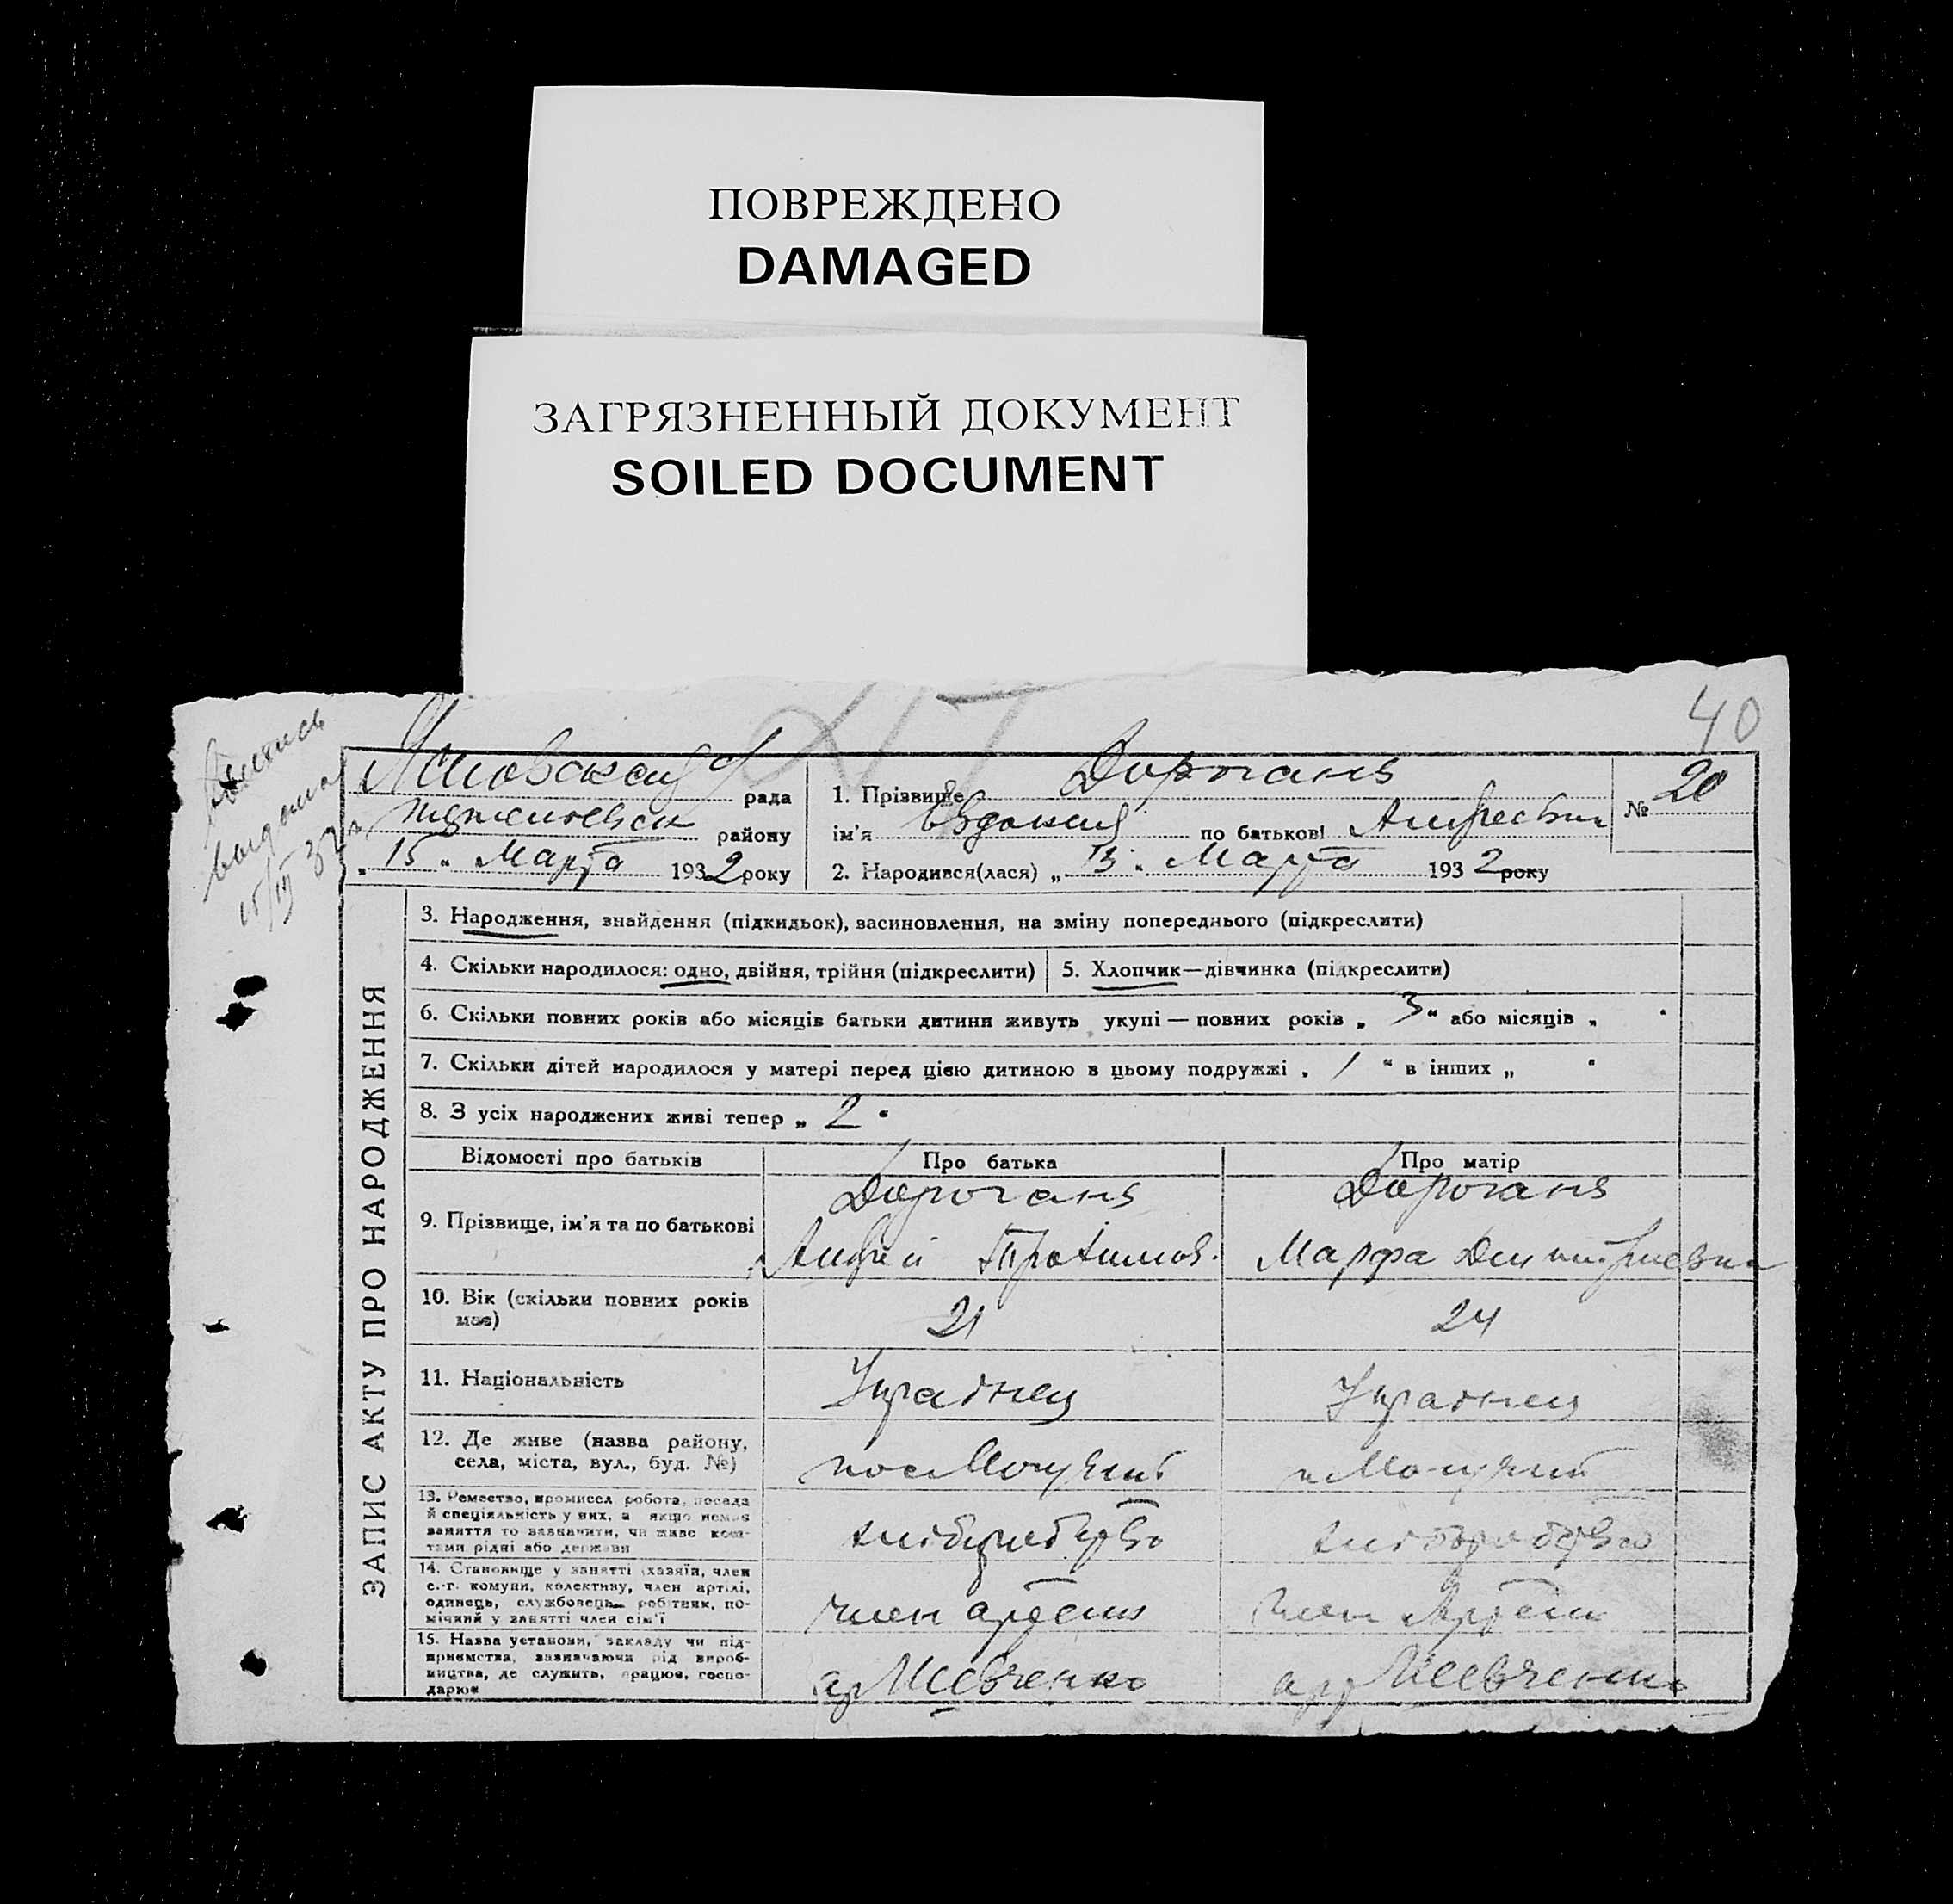 ПОВРЕЖДЕНО
DAMAGED
ЗАГРЯЗНЕННЫЙ ДОКУМЕНТ
SOILED DOCUMENT
40
выдана
15/III 32 г
рада
району
„ 15 " Марта 1932 року
1. Прізвище Дорогань
ім'я Євдокия по батькові Андреевна
№ 20
2. Народився(лася) „ 13 " Марта 1932 року
ЗАПИС АКТУ ПРО НАРОДЖЕННЯ
3. Народження, знайдення (підкидьок), васиновлення, на зміну попереднього (підкреслити)
4. Скільки народилося: одно, двійня, трійня (підкреслити)
5. Хлопчик—дівчинка (підкреслити)
6. Скільки повних років або місяців батьки дитини живуть укупі — повних років „ 3 " або місяців „ "
7. Скільки дітей народилося у матері перед цією дитиною в цьому подружжі „ 1 " в інших „ "
8. З усіх народжених живі тепер „ 2 "
Відомості про батьків
Про батька
Про матір
9. Прізвище, ім'я та по батькові
Дорогань
Андрей
Дорогань
Марфа Дмитриевна
10. Вік (скільки повних років має)
21
24
11. Національність
Украінец
Украінец
12. Де живе (назва району,
села, міста, вул., буд. №)
13. Ремество, промисел робота, посада
й спеціяльність у них, а якщо немає
заняття то зазначити, чи живе кош-
тами рідні або держави
хліборобство
хліборобство
14. Становище у занятті (хазяїн, член
с.-г. комуни, колективу, член артілі,
одинець, службовець, робітник, по-
мічний у занятті член сім'ї
член артели
член Артели
15. Назва установи, закладу чи під-
приємства, зазначаючи рід вироб-
ництва, де служить, працює, госпо-
дарює
ар Шевченко
ар Шевченко